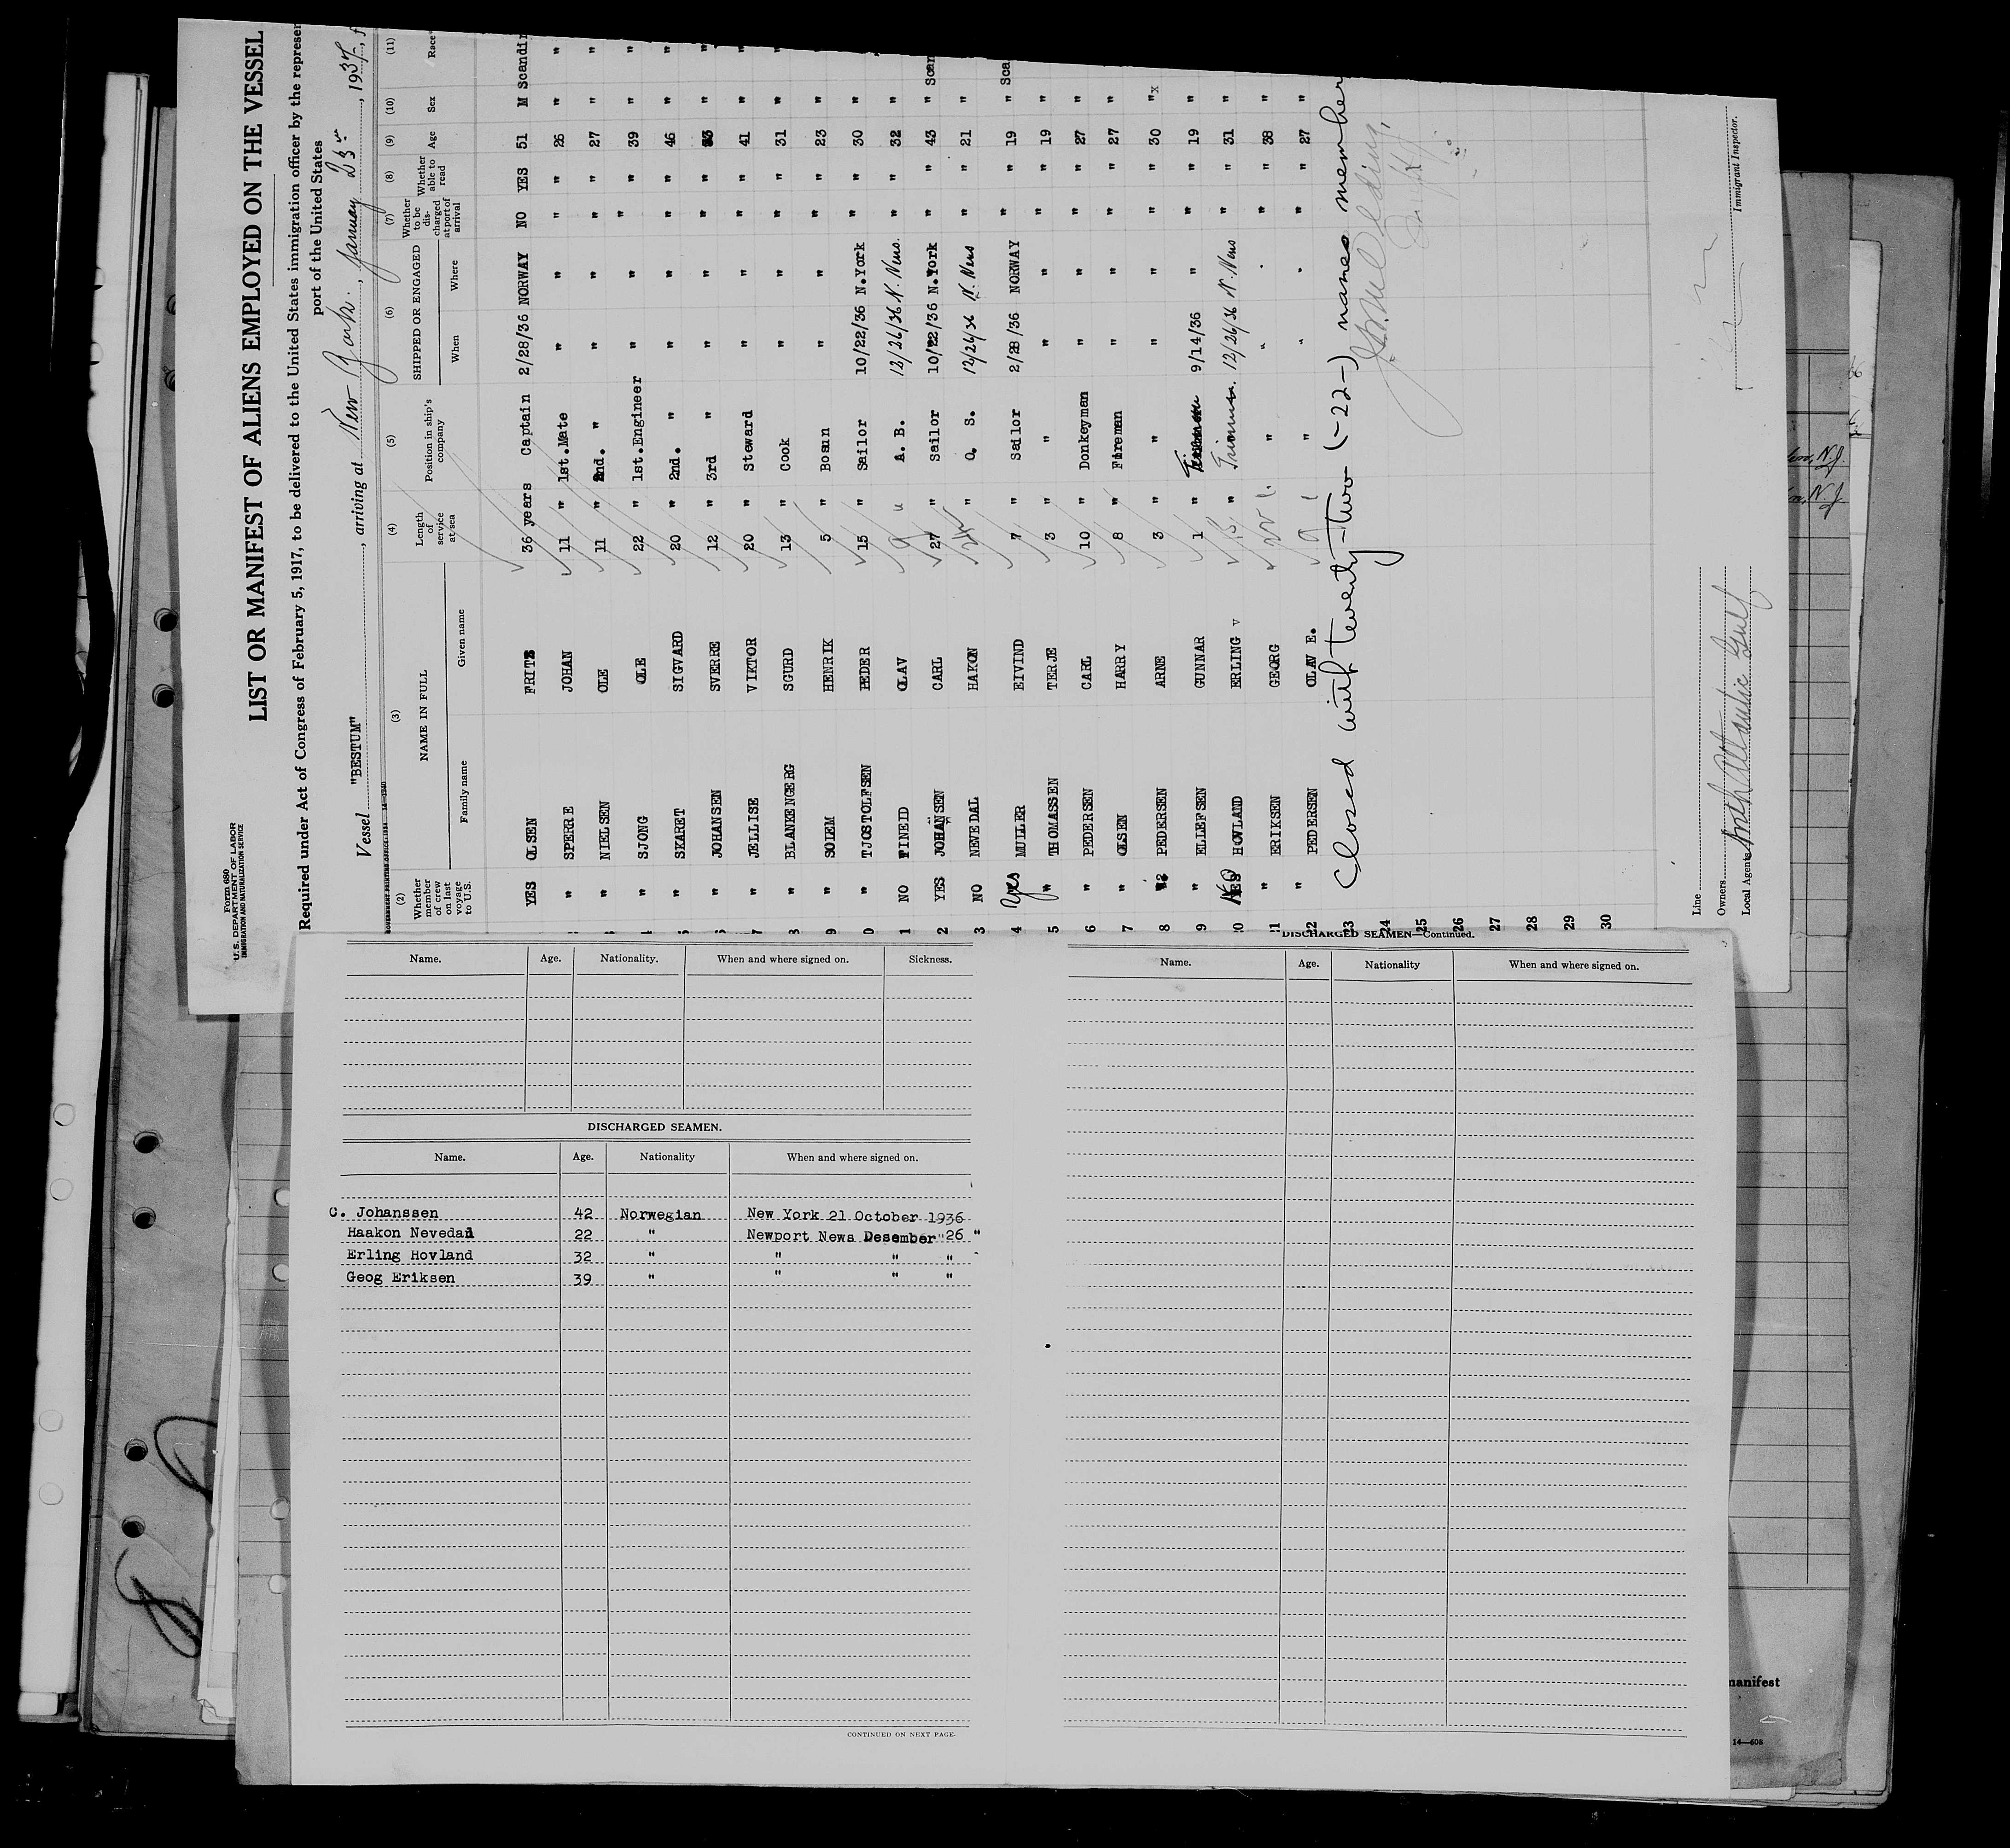 Form 680
U.S. DEPARTMENT OF LABOR
IMMIGRATION AND NATURALIZATION SERVICE
LIST OR MANIFEST OF ALIENS EMPLOYED ON THE VESSEL
Required under Act of Congress of February 5, 1917, to be delivered to the United States immigration officer by the represen
port of the United States
Vessel "BESTUM", arriving at New York, January 25, 1937, f
(2) (3) (4) (5) (6) (7) (8) (9) (10) (11)
Whether member of crew on last voyage to U.S. NAME IN FULL Family name Given name Length of service at sea Position in ship's company SHIPPED OR ENGAGED When Where Whether to be discharged at port of arrival Whether able to read Age Sex Race
YES OLSEN FRITS 36 years Captain 2/28/36 NORWAY NO YES 51 M Scandin
" SPERRE JOHAN 11 " 1st.Mate " " " " 26 " "
" NIELSEN OLE 11 " 2nd. " " " " " 27 " "
" SJONG OLE 22 " 1st.Engineer " " " " 39 " "
" SKARET SIGVARD 20 " 2nd. " " " " " 46 " "
" JOHANSEN SVERRE 12 " 3rd " " " " " " "
7 " JELLISE VIKTOR 20 " Steward " " " " 41 " "
8 " BLANKENGERG SGURD 13 " Cook " " " " 31 " "
9 " SOLEM HENRIK 5 " Bosun " " " " 23 " "
0 " TJOSTOLFSEN PEDER 15 " Sailor 10/22/36 N.York " " 30 " "
1 NO TINEID OLAV 9 " A. B. 12/26/36 N. News. " " 32 " "
2 YES JOHANSEN CARL 27 " Sailor 10/22/36 N.York " " 43 " Scan
3 NO NEVEDAL HAKON " O. S. 12/26/36 N. News " " 21 " "
4 Yes MULER EIVIND 7 " Sailor 2/28/36 NORWAY " " 19 " Sca
5 " THOMASSEN TERJE 3 " " " " " " 19 "
6 " PEDERSEN CARL 10 " Donkeyman " " " " 27 "
7 " OLSEN HARRY 8 " Fireman " " " " 27 "
8 " PEDERSEN ARNE 3 " " " " " " 30 "x
9 " ELLEFSEN GUNNAR 1 " 9/14/36 " " " 19 "
20 NO HOVLAND ERLING " Trimmer. 12/26/36 N. News " " 31 "
21 " ERIKSEN GEORG " " " " " 38 "
22 " PEDERSEN OLAV E. 9 " " " " " " 27 "
23 Closed with twenty-two (-22-) names member
24
25
26
27
28
29
30
Line
Owners
Local Agents North Atlantic Gulf
Immigrant Inspector.
Name. Age. Nationality. When and where signed on. Sickness.
DISCHARGED SEAMEN.
Name. Age. Nationality When and where signed on.
C. Johanssen 42 Norwegian New York 21 October 1936
Haakon Nevedal 22 " Newport News Desember "26 "
Erling Hovland 32 " " " "
Geog Eriksen 39 " " " "
CONTINUED ON NEXT PAGE.
DISCHARGED SEAMEN—Continued.
Name. Age. Nationality When and where signed on.
N.J.
N.J.
manifest
14—608